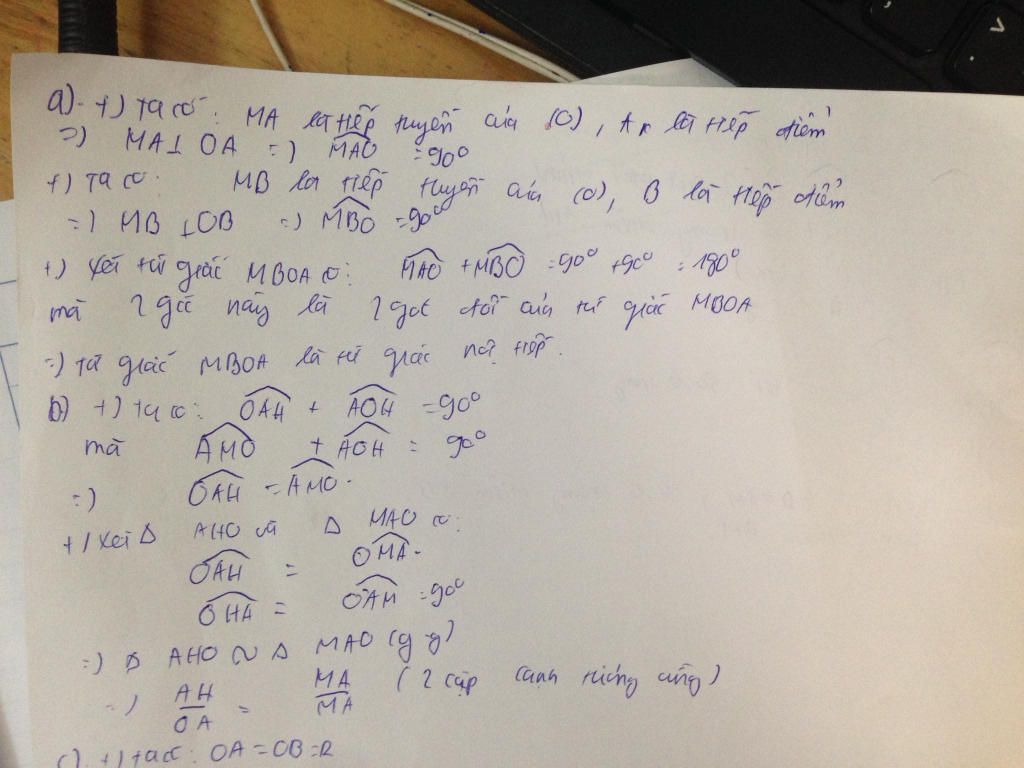 a) +) Ta có: MA là tiếp tuyến của (O), A là tiếp điểm
=) MA⊥ OA =) MAO = 90°
+) Ta có: MB là tiếp tuyến của (O), B là tiếp điểm
=) MB ⊥OB =) MBO = 90°
+) Xét tứ giác MBOA có: MAO + MBO = 90° + 90° = 180°
mà 2 góc này là 2 góc đối của tứ giác MBOA
=) Tứ giác MBOA là tứ giác nội tiếp.
b) +) Ta có: OAH + AOH = 90°
mà AMO + AOH = 90°
=) OAH = AMO.
+) Xét Δ AHO và Δ MAO có:
OAH = OMA.
OHA = OAM = 90°
=) Δ AHO ~ Δ MAO (g-g)
=) AH/OA = MA/MA (2 cặp cạnh tương ứng)
c). +) Ta có: OA = OB = R